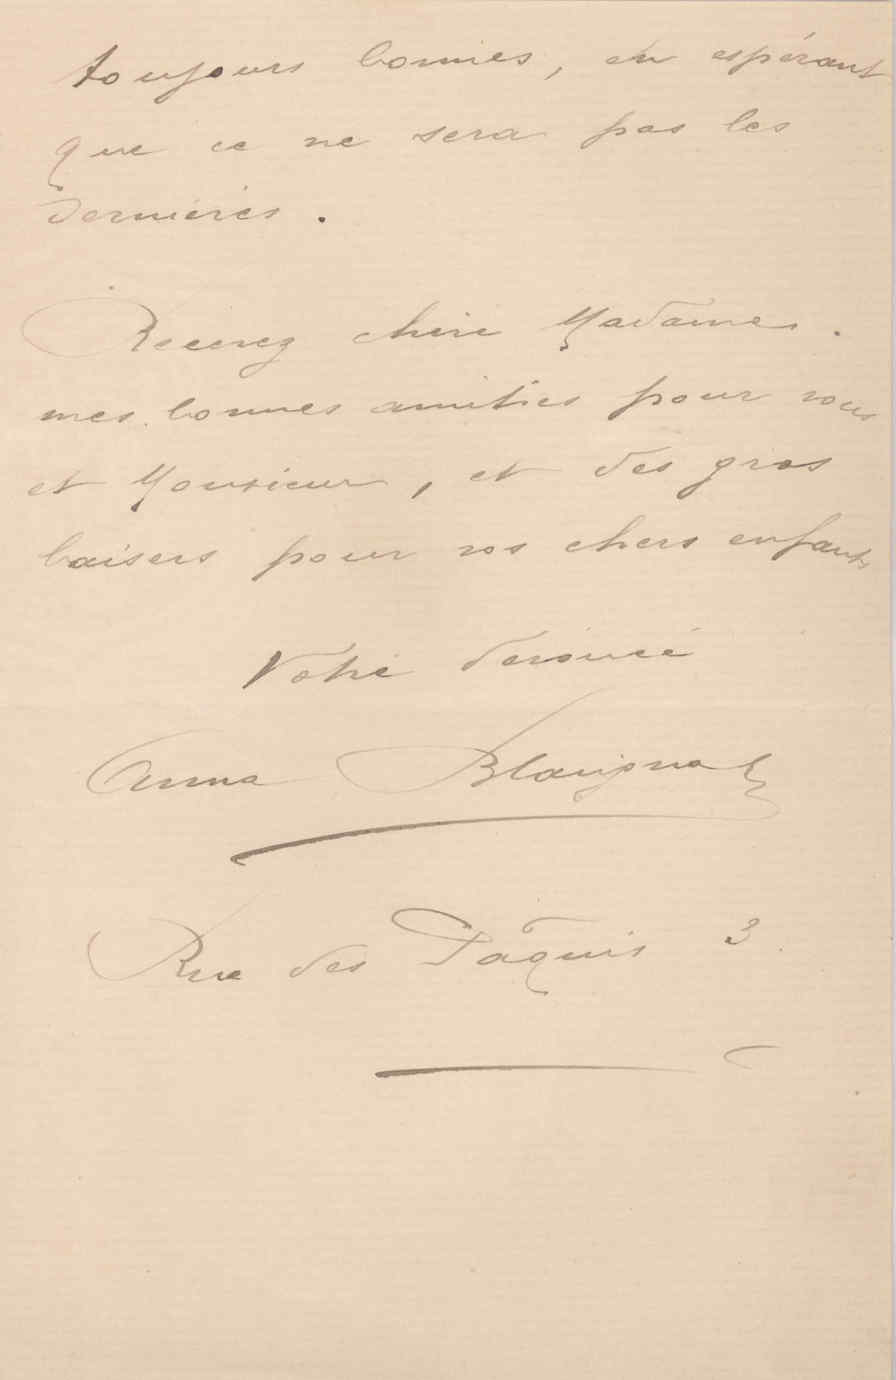 toujours bonnes, en espérant
que ce ne sera pas les
dernières.
Recevez chère Madame.
mes bonnes amitiés pour vous
et Monsieur, et des gros
baisers pour vos chers enfants
Votre dévouée
Anna Blavignac
Rue des Pâquis 3